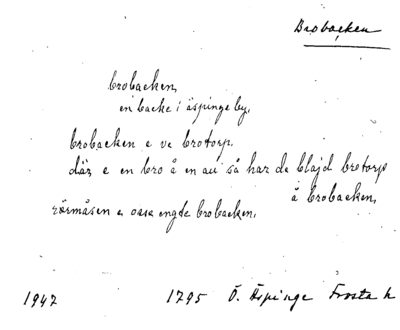 Brobacken
brobacken,
en backe i äspinge by,
brobacken e ve brotorp.
där e en bro å en au så har de blajd brotorp
å brobacken,
rörmåsen e ossa engte brobacken,
1947 1795 Ö. Äspinge Frosta h